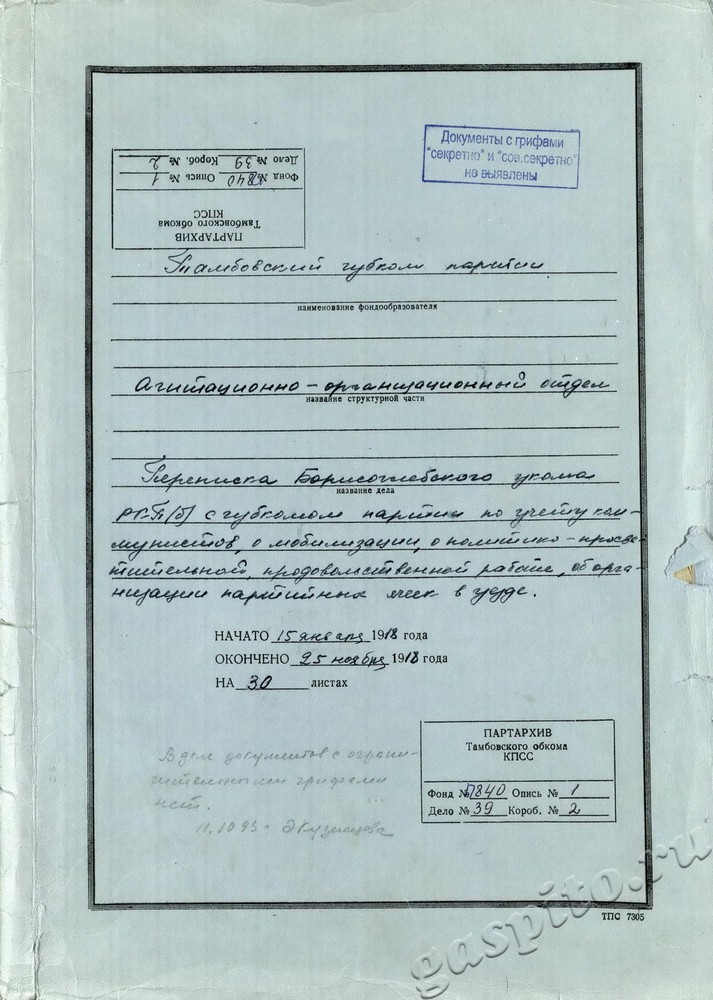 Документы с грифами
"секретно" и "сов.секретно"
не выявлены
ПАРТАРХИВ
Тамбовского обкома
КПСС
Фонд № П840 Опись № 1
Дело № 39 Короб. № 2
Тамбовский губком партии
наименование фондообразователя
Агитационно-организационный отдел
название структурной части
Переписка Борисоглебского укома
название дела
РКП(б) с губкомом партии по учету ком-
мунистов, о мобилизации, о политико-просве-
тительной, продовольственной работе, об орга-
низации партийных ячеек в уезде.
НАЧАТО 15 января 1918 года
ОКОНЧЕНО 25 ноября 1918 года
НА 30 листах
ПАРТАРХИВ
Тамбовского обкома
КПСС
Фонд № П840 Опись № 1
Дело № 39 Короб. № 2
В деле документов с ограни-
чительными грифами
нет.
11.10.93- Кузнецова
ТПС 7305
gaspito.ru